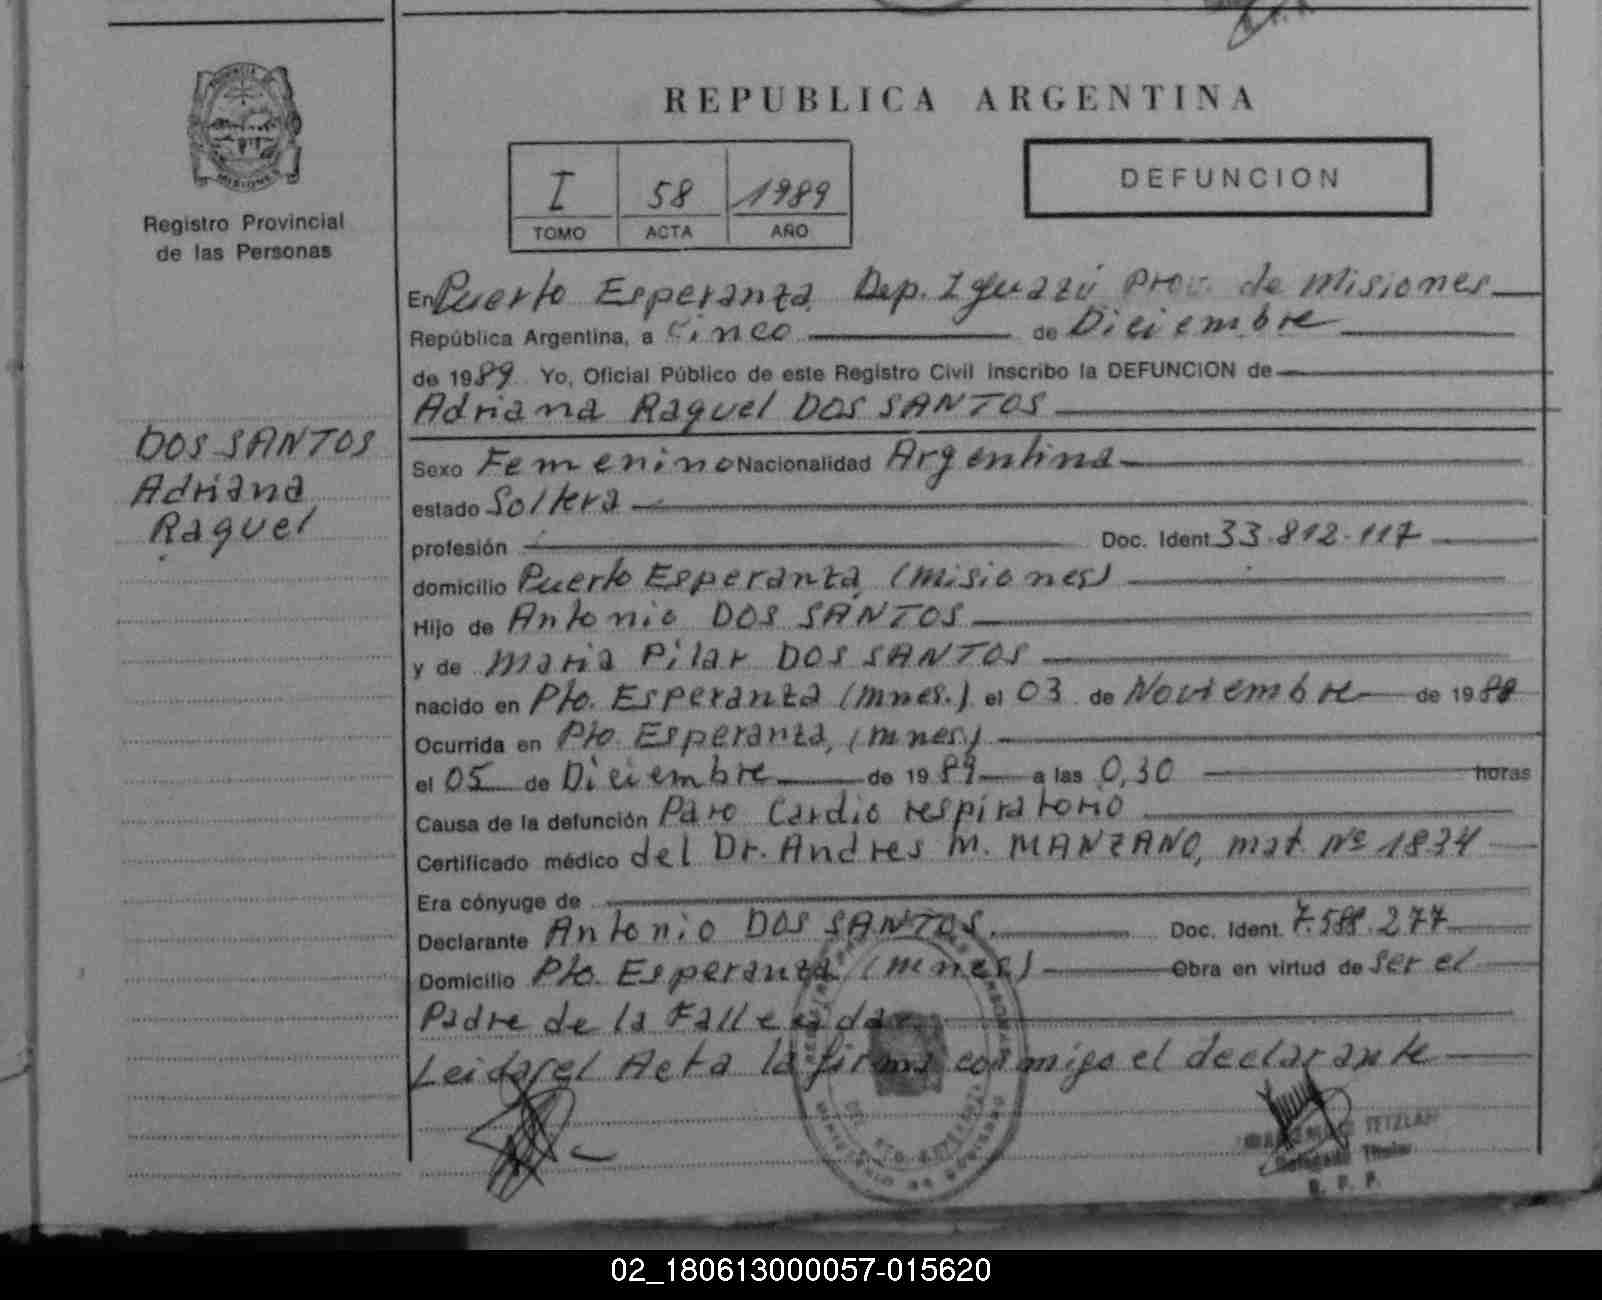 REPUBLICA ARGENTINA
PROVINCIA
MISIONES
Registro Provincial
de las Personas
I 58 1989
TOMO ACTA AÑO
DEFUNCION
En Puerto Esperanza, Dep. Iguazú Prov. de Misiones
República Argentina, a Cinco de Diciembre
de 1989 Yo, Oficial Público de este Registro Civil inscribo la DEFUNCION de
Adriana Raquel DOS SANTOS
DOS SANTOS
Adriana
Raquel
Sexo Femenino Nacionalidad Argentina
estado Soltera
profesión Doc. Ident. 33.812.117
domicilio Puerto Esperanza, (Misiones)
Hijo de Antonio DOS SANTOS
y de Maria Pilar DOS SANTOS
nacido en Pto. Esperanza (Mnes.) el 03 de Noviembre de 1988
Ocurrida en Pto. Esperanza, (Mnes)
el 05 de Diciembre de 1989 a las 0,30 horas
Causa de la defunción Paro Cardio respiratorio
Certificado médico del Dr. Andres M. MANZANO, mat. Nº 1834
Era cónyuge de
Declarante Antonio DOS SANTOS. Doc. Ident. 7.588.277
Domicilio Pto. Esperanza (Mnes) Obra en virtud de ser el
Padre de la Fallecida
Leida el Acta la firma conmigo el declarante
MINISTERIO DE GOBIERNO
TETZLAF
Delegado Titular
R. P. P.
02_180613000057-015620